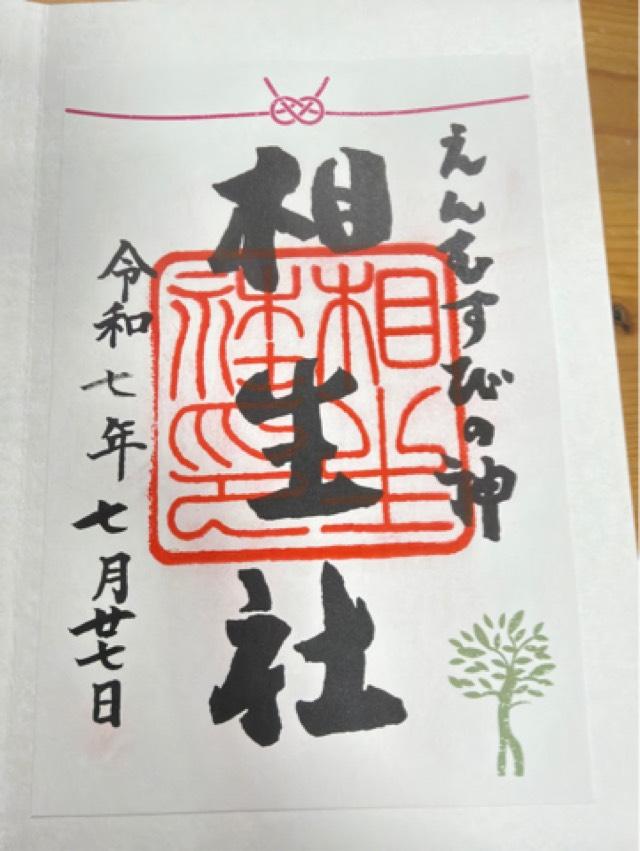 えんむすびの神
相生社
相生社印
令和七年七月廿七日